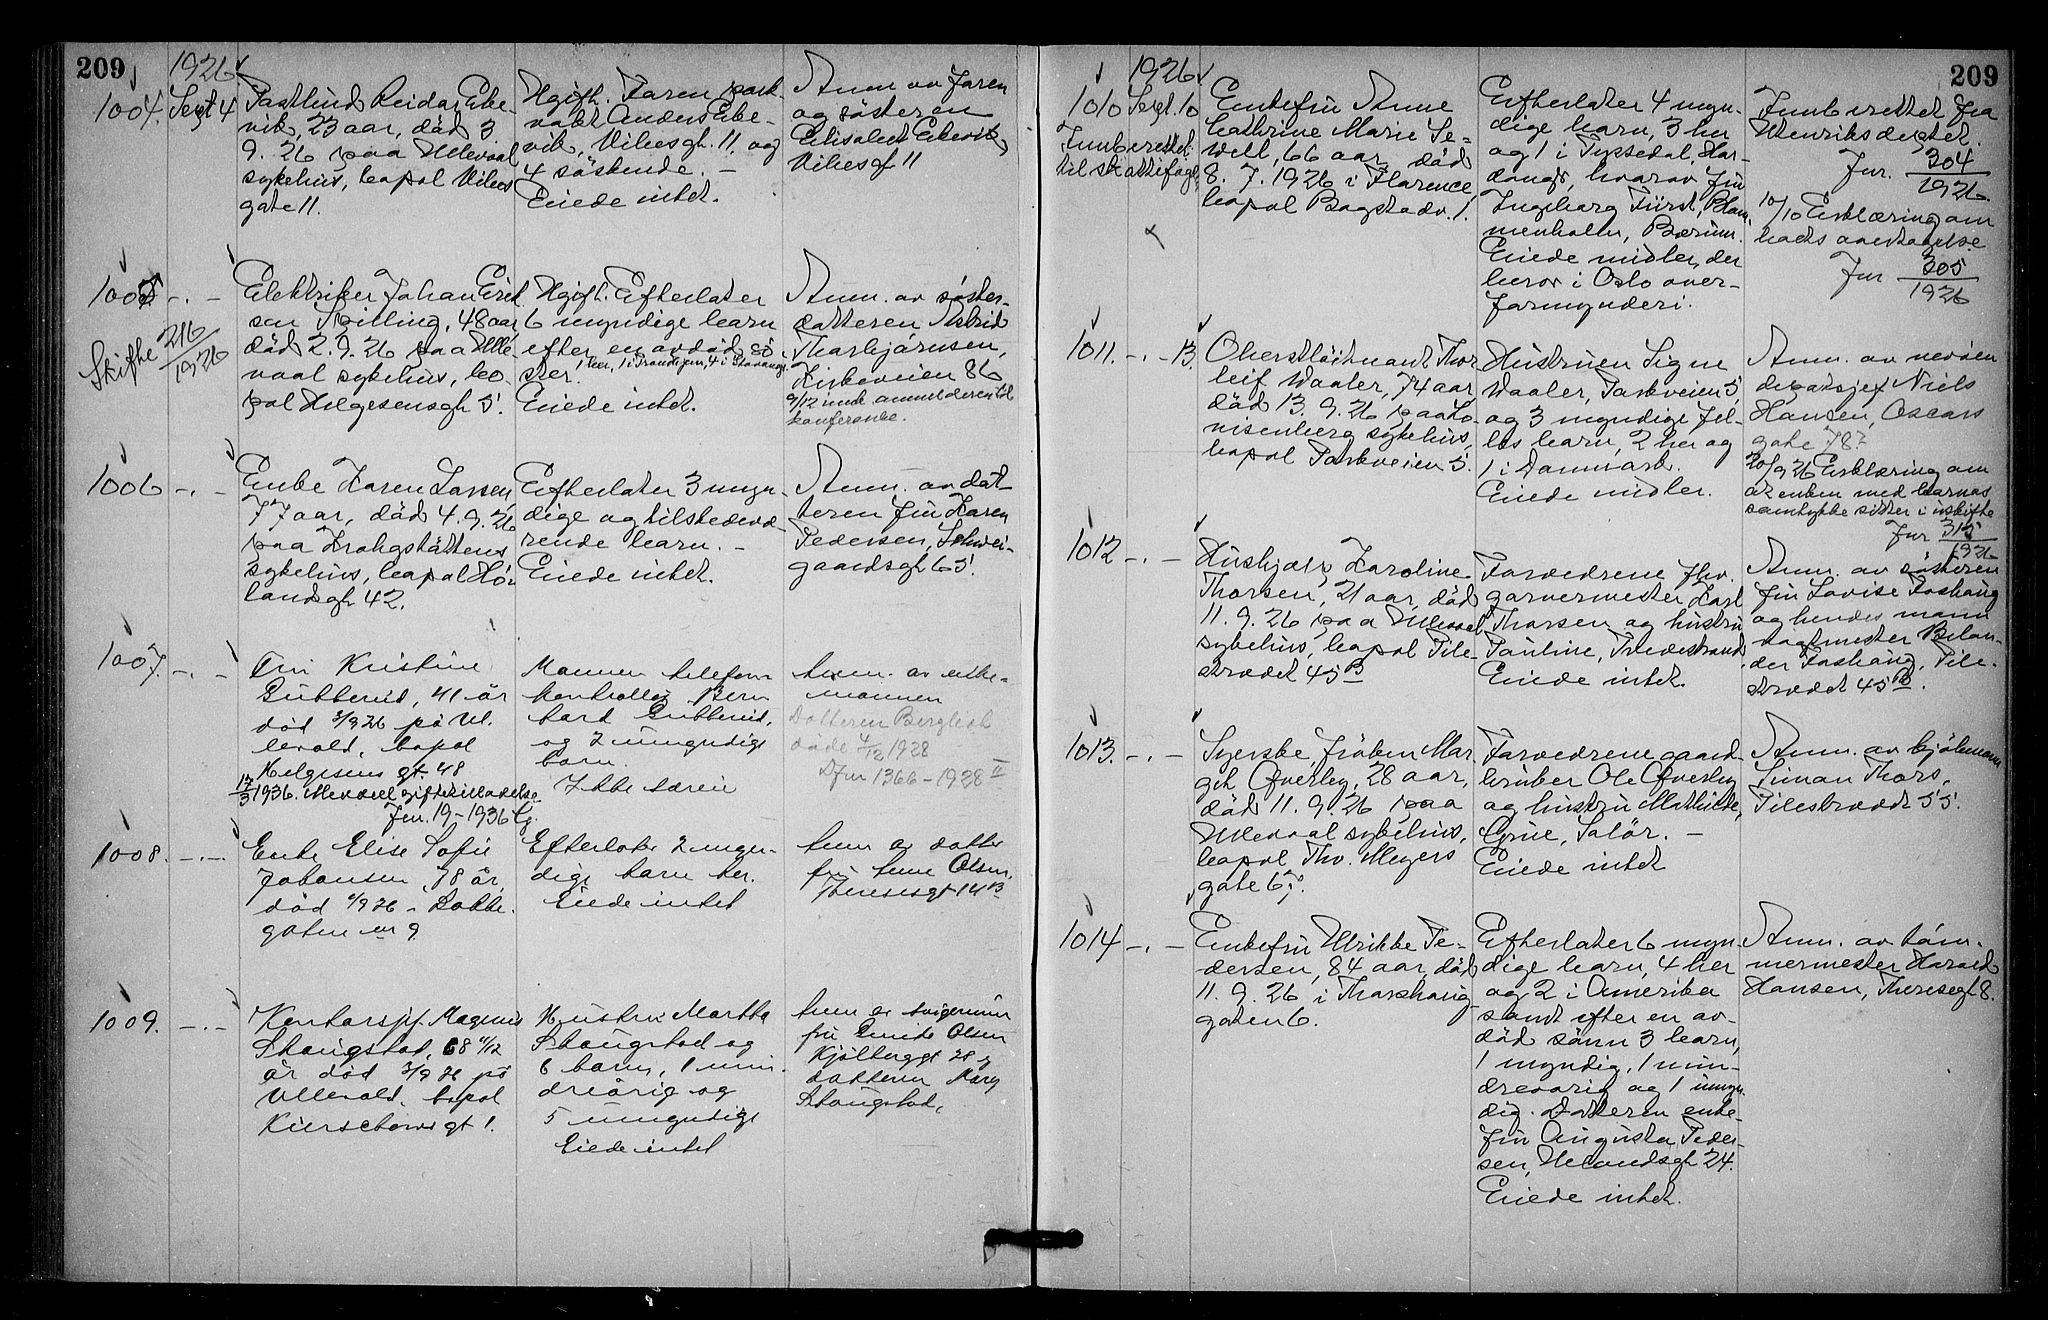 209
1926
1004. Sept 4
Reidar Eke-
vik, 23 aar, död 3
9. 26 paa Ullevaal
sykehus, bopal Vibes
gate 11.
Ugift. Faren park-
vakt Anders Eke-
vik, Vibesgt. 11 og
4 söskende. –
Eiede intet.
Anm. av faren
og sösteren
Elisabeth Ekevik,
Vibesgt 11
1005 –.–
Skifte 216
1926
Elektriker Johan Erik
sen Spilling, 48 aar
död 2.9.26 paa Ulle-
vaal sykehus, bo-
pal Helgesensgt 5.
Ugift. Efterlater
6 myndige barn
efter en avdöd sö
ster.
Eiede intet.
Anm. av söster-
datteren Astrid
Thorbjörnsen,
Kirkeveien 86
9/12 indk anmelderen til
konferanse.
1006 –.–
Enke Karen Larsen,
77 aar, död 4.9.26
paa Krohgstöttens
sykehus, bopal Hö-
landsgt 42.
Efterlater 3 myn-
dige og tilstedevæ-
rende barn. –
Eiede intet.
Anm. av dat
teren fru Karen
Pedersen, Schwei-
gaardsgt 65.
1007. –.–
Fru Kristine
Gubberud, 41 år
död 3/9 26 på Ul-
levold, bopal
Helgesens gt 48
17/3 1936. Meddelt gifteskilladelse
Jnr. 19 – 1936
Mannen telefon-
kontrollör Bern
hard Gubberud,
og 2 umyndige
barn.
Ikke særeie
Anm. av enke-
mannen
Datteren Bergliot
döde 4/12 1928
Djnr 1366 – 1928 II
1008. –.–
Enke Elise Sofie
Johansen, 78 år,
död 4/9 26 – Bakke-
gaten nr 9
Efterlater 2 myn-
dige barn her.
Eiede intet
Anm av datter
fru Anne Olsen,
Theresesgt 14 B
1009. –.–
Kontorsjef Magnus
Skougstad, 68 4/12
år död 3/9 26 på
Ullevold, bopal
Kierschows gt 1.
Hustru Martha
Skougstad og
6 barn, 1 min-
dreårig og
5 umyndige
Eiede intet
Anm av svigerinne
fru Olsen
Kjölberggt 28 og
datteren Mary
Skougstad,
209
1926
1010 Sept. 10
Innberettet
til skattefogd
Enkefru Anne
Cathrine Marie Se-
well, 66 aar, död
8. 7. 1926 i Florence,
bopal Bogstadv. 1.
Efterlater 4 myn-
dige barn, 3 her
og 1 i Tyssedal, Har-
danger, hvorav fru
Ingeborg Fürst, Blom-
menholm, Bærum.
Eiede midler, der
beror i Oslo over-
formynderi.
Innberettet fra
Utenriksdeptet.
Jnr. 304
1926
10/10 Erklæring om
boets overtagelse
Jnr 305
1926
1011. –.– 13.
Oberstlöitnant Thor
leif Waaler, 74 aar
död 13.9.26 paa Lo-
visenberg sykehus,
bopal Parkveien 5.
Hustruen Signe
Waaler, Parkveien 5,
og 3 myndige fel-
les barn, 2 her og
1 i Danmark.
Eiede midler.
Anm. av nevöen
depotsjef Niels
Hansen, Oscars
gate 78 7
20/9 26 Erklæring om
at enken med barnas
samtykke sitter i uskifte
Jnr 315
1926
1012 –.–
Hushjælp Karoline
Thorsen, 21 aar, död
11.9.26 paa Ullevaal
sykehus, bopal Pile-
strædet 45 B
Forældrene fhv.
garvermester Karl
Thorsen og hustru
Pauline, Tvedestrand.
Eiede intet.
Anm. av sösteren
fru Lovise Foshaug
og hendes mann
vagtmester Belan-
der Foshaug, Pile-
strædet 45 B.
1013. –.–
Syerske, fröken Mar
git Qverley, 28 aar,
död 11.9.26 paa
Ullevaal sykehus,
bopal Thv. Meyers
gate 65.
Forældrene gaard-
bruker Ole Qverley
og hustru Mathilde,
Grue, Solör. –
Eiede intet
Anm. av kjöbmann
Simon Thors,
Pilestrædet 55.
1014 –.–
Enkefru Ulrikke Pe-
dersen, 84 aar död
11. 9. 26 i Thorshaug-
gaten 6.
Efterlater 6 myn-
dige barn, 4 her
og 2 i Amerika
samt efter en av-
död sönn 3 barn,
1 myndig, 1 min-
dreaarig og 1 umyn-
dig. Datteren enke-
fru Augusta Peder-
sen, Uelandsgt 24.
Eiede intet.
Anm. av töm-
mermester Harald
Hansen, Theresegt 8.